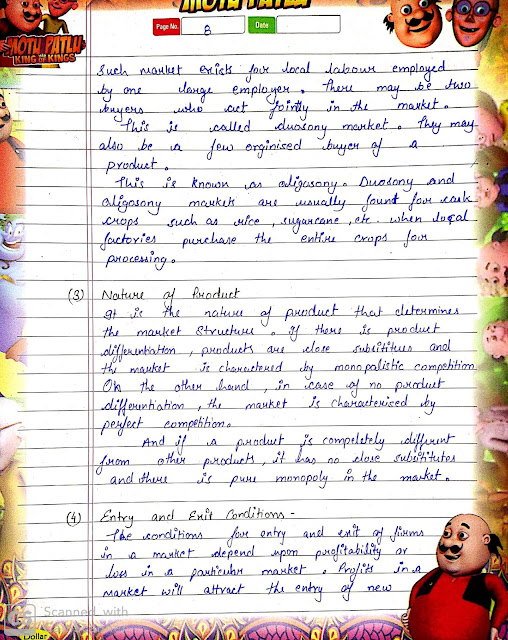 MOTU PATLU
Page No. 8 Date
MOTU PATLU
KING OF THE KINGS
Such market exists for local labour employed
by one large employer. There may be two
buyers who act jointly in the market.
This is called duosony market. They may
also be a few orginised buyer of a
product.
This is known as oligasony. Duosony and
oligasony market are usually fount for cash
crops such as rice, sugarcane, etc. when local
factories purchase the entire crops for
processing.
(3) Nature of Product
It is the nature of product that determines
the market structure. if there is product
differentiation, products are close subsititues and
the market is charactered by monopalistic competition
On the other hand, in case of no product
differentiation, the market is characterised by
perfect competition.
And if a product is completely different
from other products, it has no close subsititutes
and there is pure monopoly in the market.
(4) Entry and Exit Conditions -
The conditions for entry and exit of firms
in a market depend upon profitability or
loss in a particular market. Profits in a
market will attract the entry of new
Scanned with
Dollar